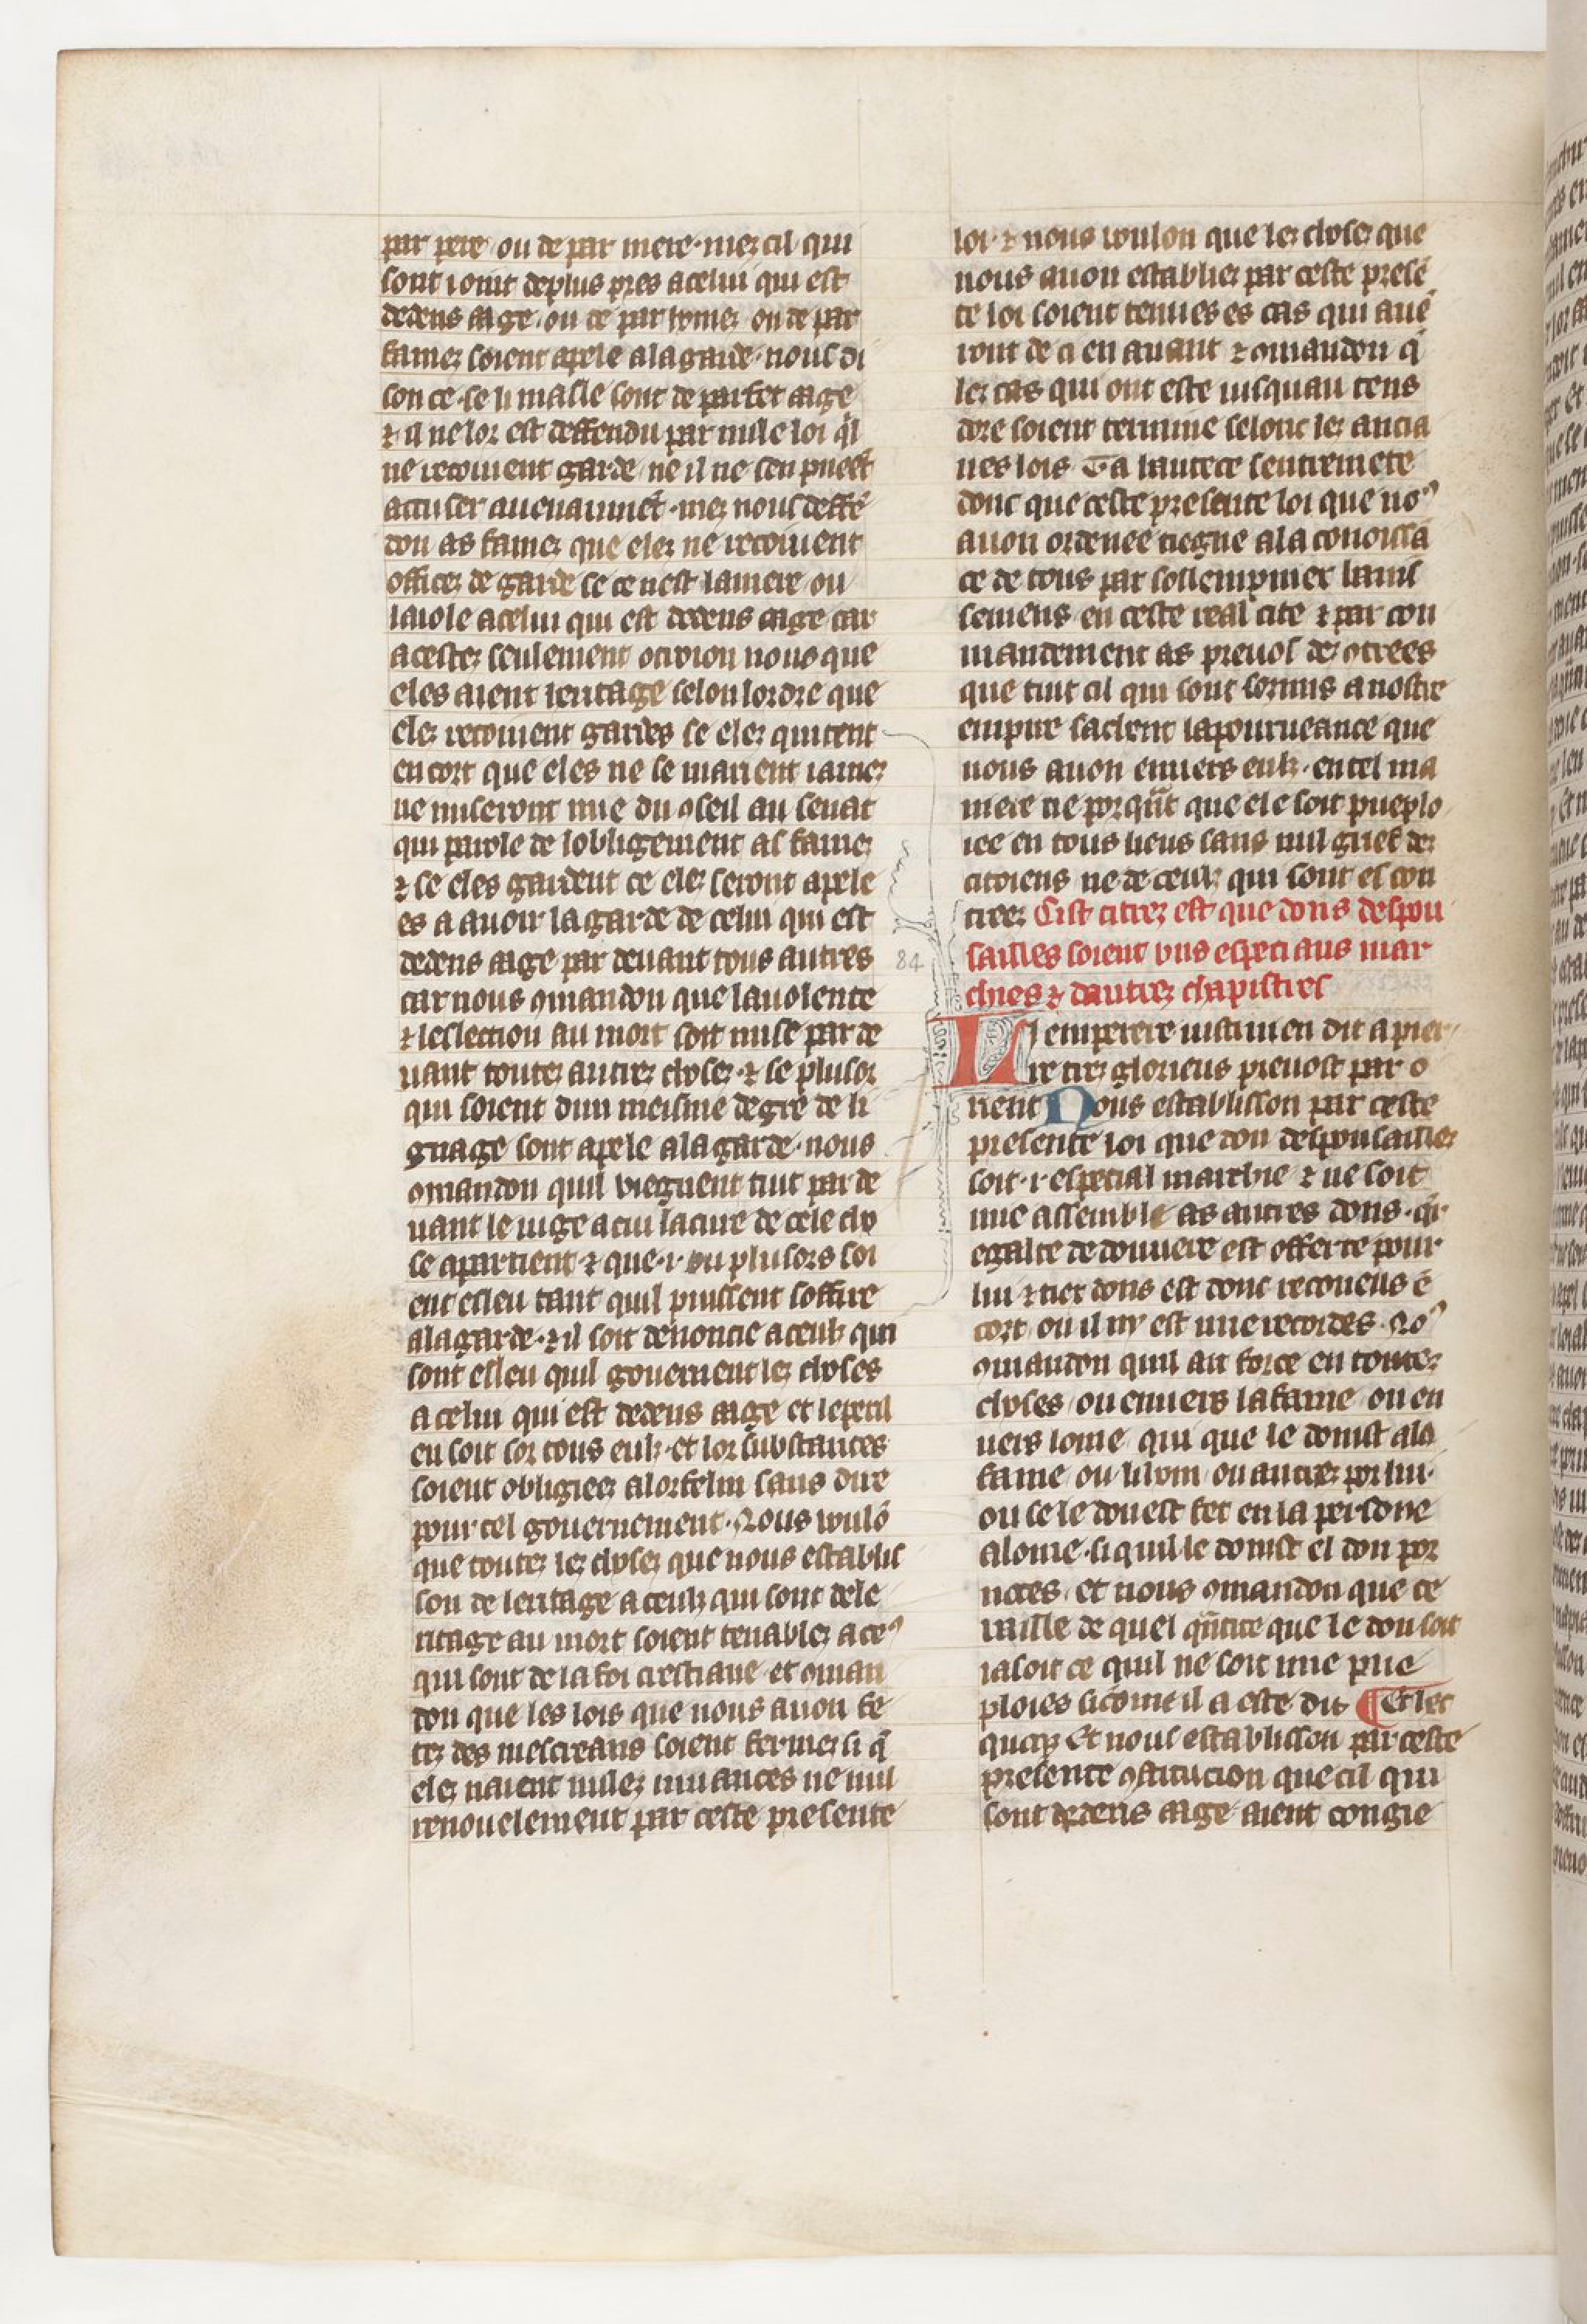 par pere ou de par mere · mez cil qui
sont ioint de plus pres a celui qui est
dedens aage · ou de par homez ou de par
famez soient apele a la garde · nous di
son ce · se li masle sont de parfet aage
⁊ il ne lor est deffendu par nule loi qͥl
ne recoiuent garde ne il ne sen pueēt
acuser auenaumēt · mez nous deffē
don as famez que elez ne recoiuent
officez de garde se ce nest la mere ou
laiole a celui qui est dedens aage car
a cestez seulement otroion nous que
eles aient leritage selon lordre que
elez recoiuent gardes se elez quitent
en cort que eles ne se marient iamez
ne niseront mie du ꝯseil au senat
qui parole de lobligement as famez
⁊ se eles gardent ce elez seront apele
es a auoir la garde de celui qui est
dedens aage par deuant tous autres
car nous ꝯmandon que la uolente
⁊ leslection au mort soit mise par de
uant toutez autrez chosez · ⁊ se plusor
qui soient dun meisme degre de li
gnage sont apele a la garde · nous
ꝯmandon quil viegnent tuit par de
uant le iuge a cui la cure de cele cho
se apartient ⁊ que · i · ou plusors soi
ent esleu tant quil puissent soffire
a la garde · ⁊ il soit denoncie a ceulz qui
sont esleu quil gouernent lez choses
a celui qui est dedens aage et le peril
en soit sor tous eulz · et lor substances
soient obligiees a lorfelin sans dire
pour cel gouernement · Nous voulō
que toutez lez chosez que nous establis
son de leritage a ceulz qui sont de le
ritage au mort soient tenablez a ceꝰ
qui sont de la foi crestiane et ꝯman
don que les lois que nous auon fe
tez des mescreans soient fermez si q̄
elez naient nullez muances ne nul
renouelement par ceste presente
loi · ⁊ nous voulon que lez chosez que
nous auon establiez par ceste presē
te loi soient tenues es cas qui auē
ront de ci en auant ⁊ ꝯmandon q̄
lez cas qui ont este iusquau tens
dore soient termine selonc lez ancia
nes lois Ta hautece sentremete
donc que ceste presente loi que noꝰ
auon ordenee viegne a la conoissā
ce de tous par sollempniex hanis
semens en ceste real cite ⁊ par con
mandement as preuos dez contrees
que tuit cil qui sont sormis a nostre
empire sachent la pourueance que
nous auon enuers eulz · en tel ma
niere ne porqͣt que ele soit pueplo
iee en tous lieus sans nul grief dez
citoiens ne de ceulz qui sont es con
treez Cist titrez est que dons despou
sailles soient vns especiaus mar
chies ⁊ dautrez chapistres
84
Li emperere iustinien dit a pier
re trez glorieus preuost par o
rient Nous establisson par ceste
presente loi que don despousaillez
soit · i · especial marchie ⁊ ne soit
mie assemble as autres dons · qͣr
egalte de douuere est offerte pour
lui ⁊ tiex dons est donc receneus ē
cort ou il ny est mie recordes · Noꝰ
ꝯmandon quil ait force en toutez
choses ou enuers la fame ou en
uers lome qui que le donist a la
fame ou li hom ou autrez por lui ·
ou se le don est fet en la persone
a lome · si quil le donist el don por
noces · et nous ꝯmandon que ce
vaille de quel qͣntite que le don soit
iasoit ce quil ne soit mie pue
ploies si come il a este dit ¶ Et lec
que ꝑ Et nous establisson par ceste
presente ꝯstitucion que cil qui
sont dedens aage aient congie